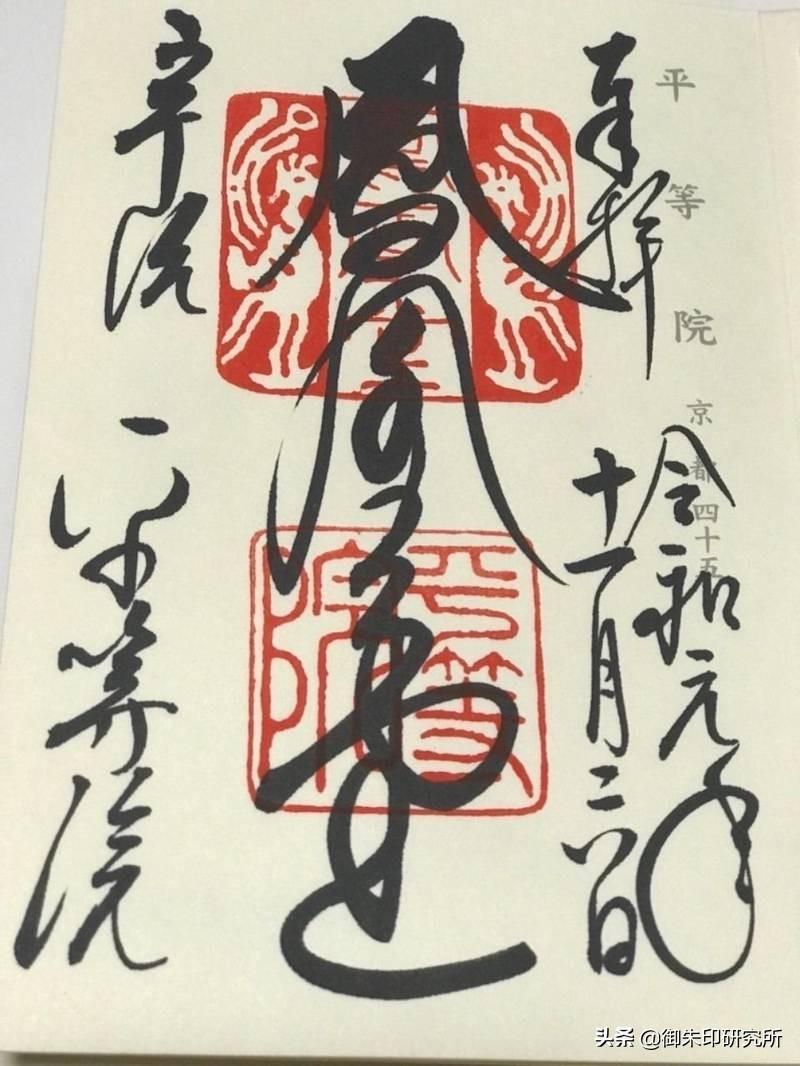 平等院 京都四十五
奉拝
令和元年
十一月二八日
鳳凰堂
平等院
宇治
平等院
头条 @御朱印研究所